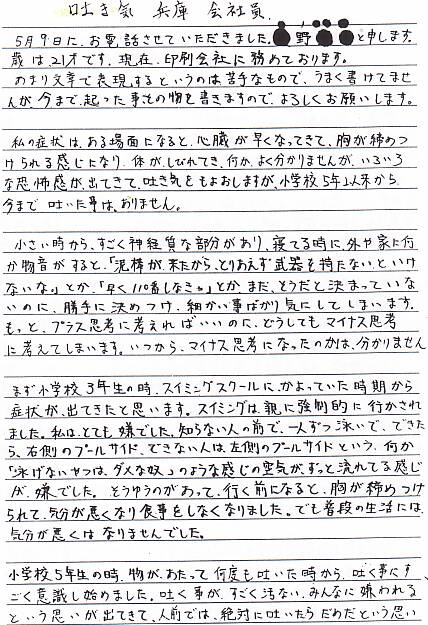 吐き気 兵庫 会社員
5月9日に、お電話させていただきました。野と申します。
歳は21才です。現在、印刷会社に務めております。
あまり文章で表現するというのは苦手なもので、うまく書けませ
んが、今まで、起った事その物を書きますので、よろしくお願いします。
私の症状は、ある場面になると、心臓が早くなってきて、胸が締めつ
けられる感じになり、体が、しびれてき、何か、よく分かりませんが、いろいろ
な恐怖感が出てきて、吐き気をもよおしますが、小学校5年以来から
今まで吐いた事は、ありません。
小さい時から、すごく神経質な部分があり、寝てる時に、外や家に何
か物音がすると、「泥棒が、来たから、とりあえず武器を持たない、といけ
ないな」とか、「早く110番しなきゃ」とか、また、そうだと決まっていな
いのに、勝手に決めつけ、細かい事ばかり気にしてしまいます。
もっと、プラス思考に考えればいいのに、どうしてもマイナス思考
に考えてしまいます。いつから、マイナス思考になったのかは、分かりません
まず小学校3年生の時、スイミングスクールに、かよっていた時期から
症状が、出てきたと思います。スイミングは、親に強制的に行かされ
ました。私は、とても嫌でした。知らない人の前で、一人ずつ泳いで、できた
ら、右側のプールサイド、できない人は、左側のプールサイドという、何か
「泳げないやつは、ダメな奴」のような感じの空気が、ずっと流れてる感じ
が、嫌でした。そうゆうのがあって、行く前になると、胸が締めつけ
られて、気分が悪くなり食事をしなくなりました。でも普段の生活には、
気分が悪くはなりませんでした。
小学校5年生の時、物が、あたって何度も吐いた時から、吐く事にす
ごく意識し始めました。吐く事が、すごく汚ない、みんなに嫌われる
という思いが出てきて、人前では、絶対に吐いたらだめだという思い